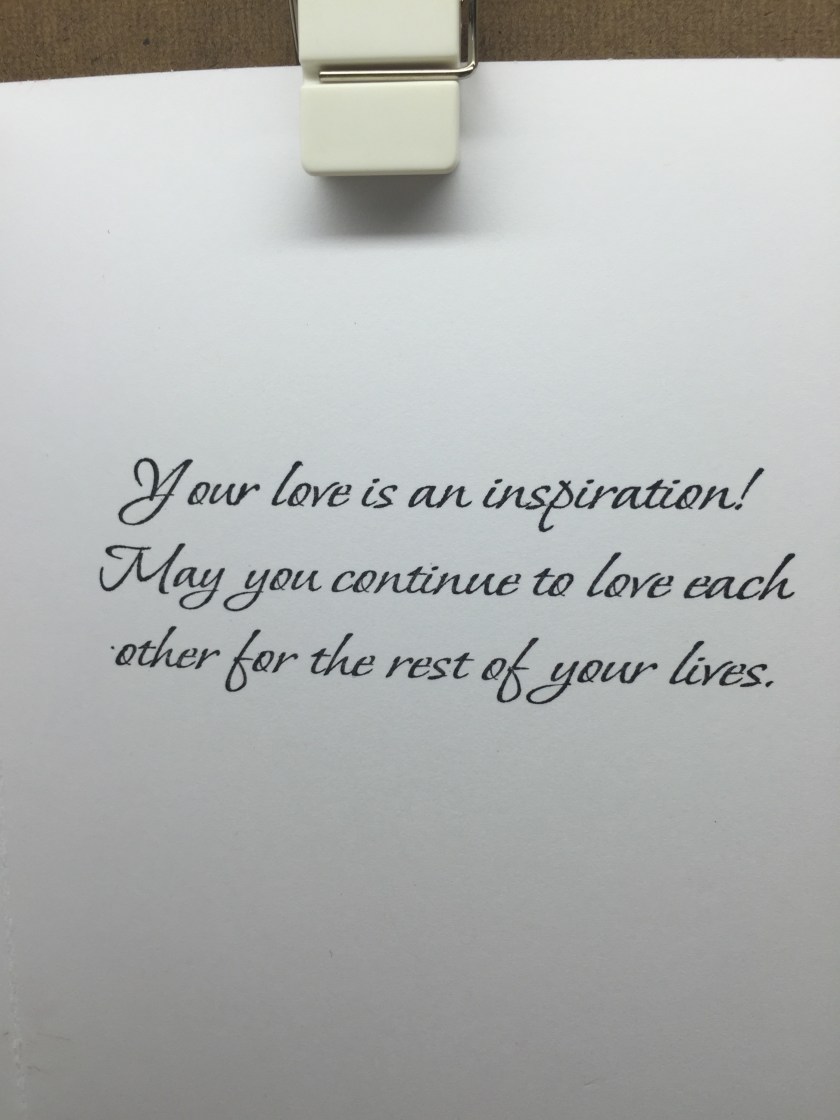 Your love is an inspiration!
May you continue to love each
other for the rest of your lives.